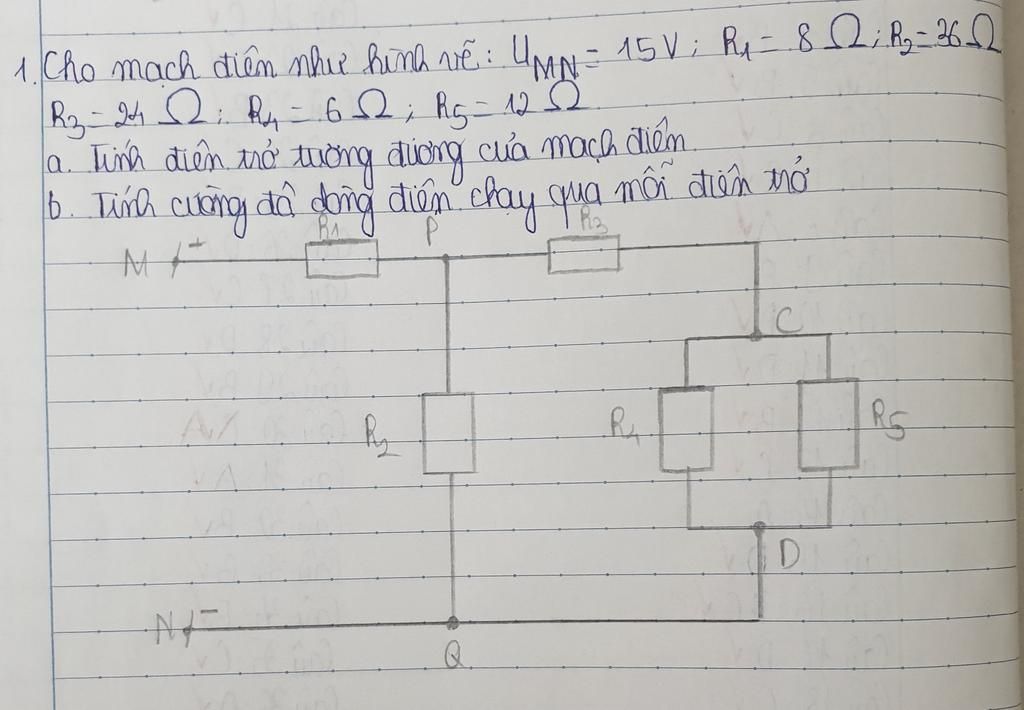 1. Cho mạch điện như hình vẽ: UMN = 15V; R1 = 8 Ω; R2 = 36 Ω
R3 = 24 Ω; R4 = 6 Ω; R5 = 12 Ω
a. Tính điện trở tương đương của mạch điểm
b. Tính cường độ dòng điện chạy qua mỗi điện trở
M + R1 P R3
C
R2 R4 R5
D
N -
Q